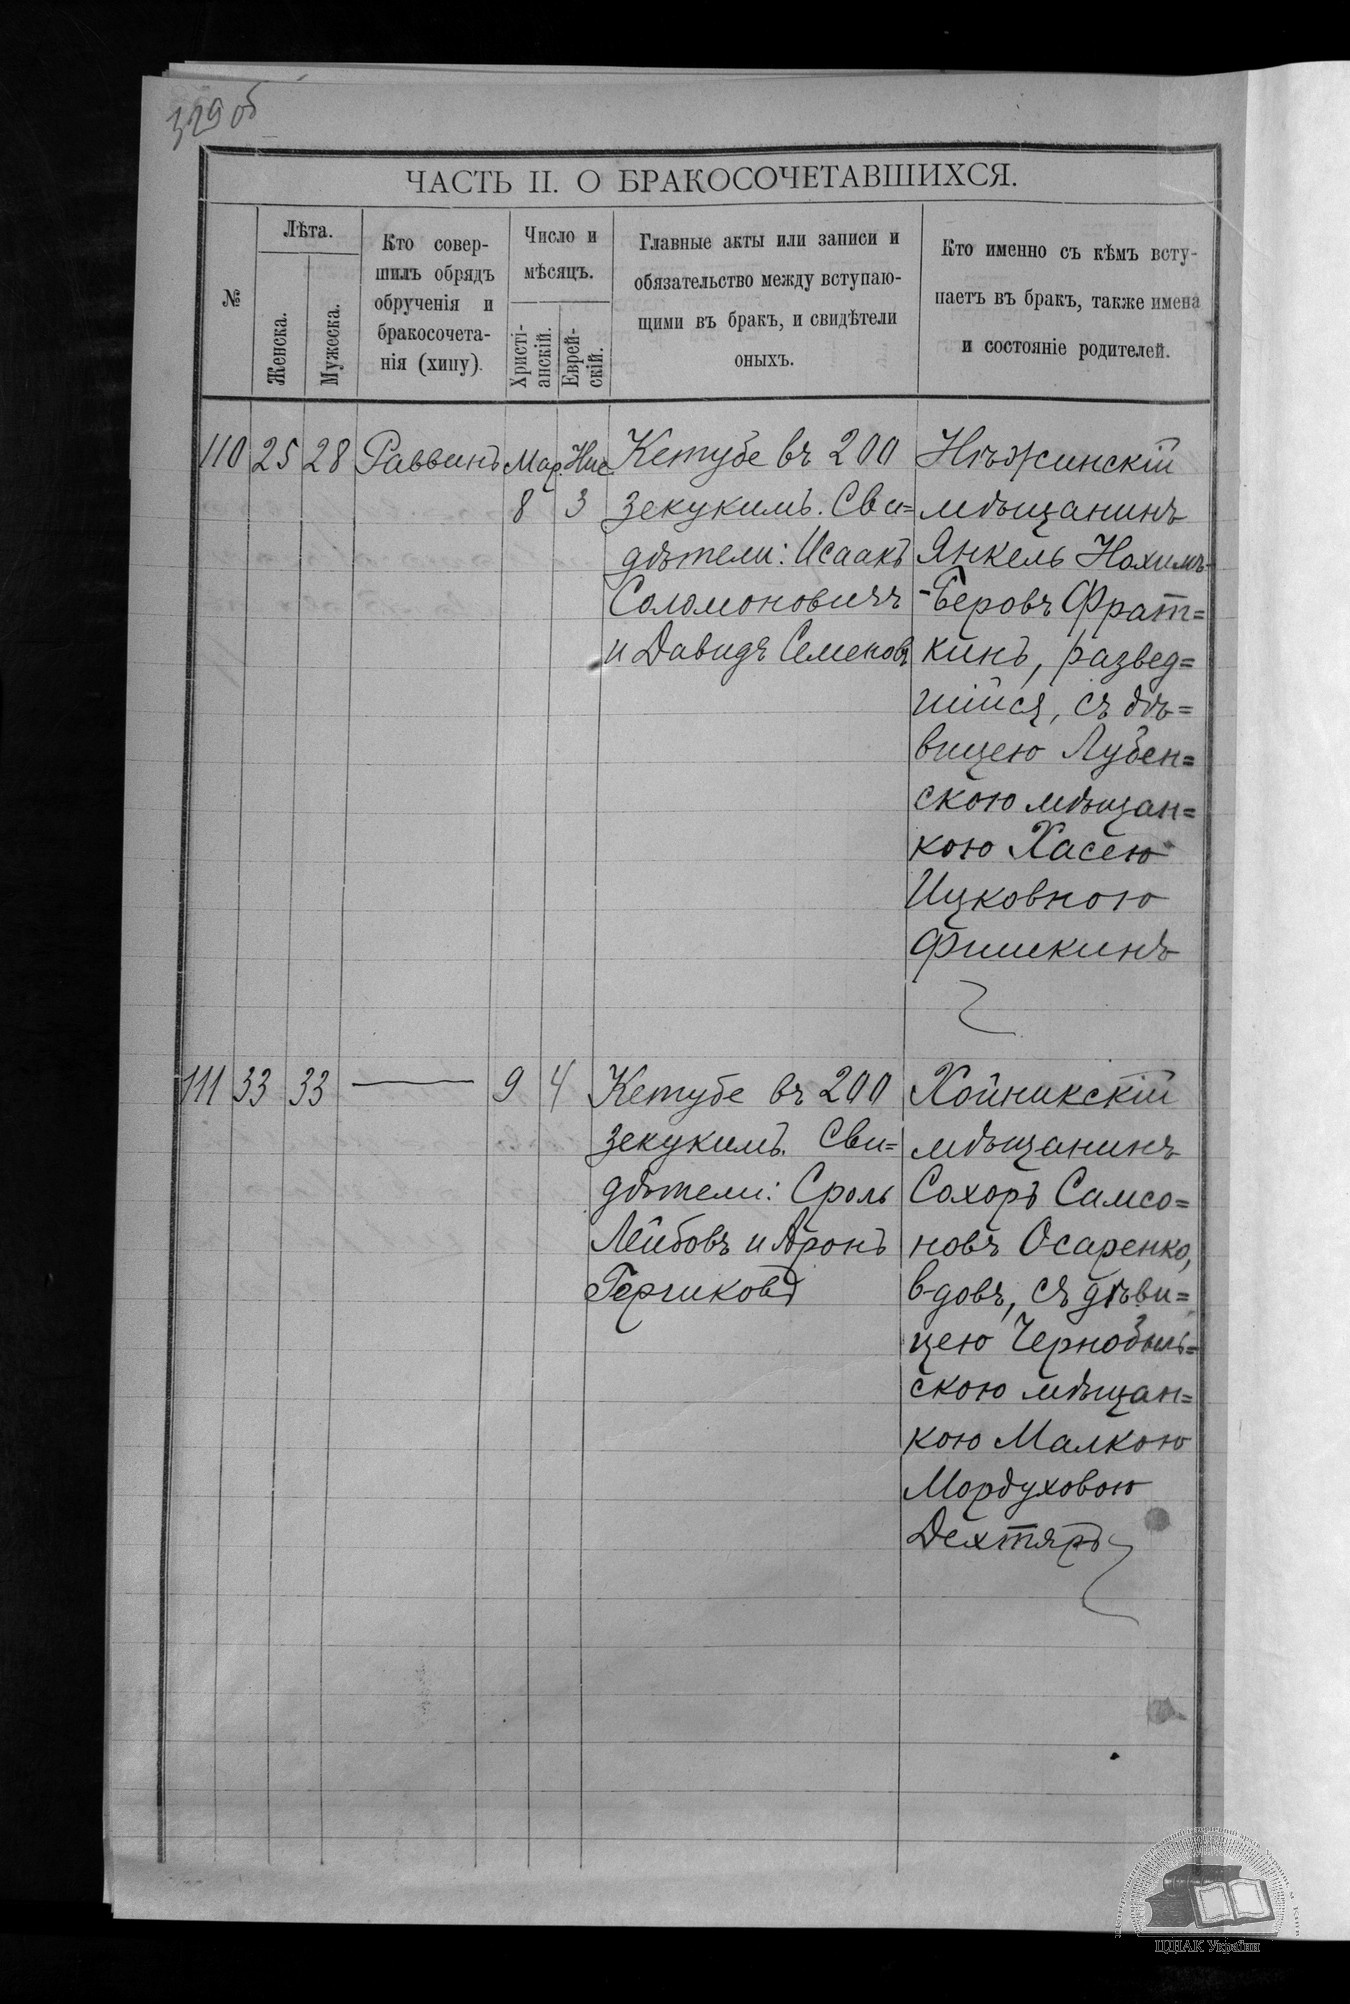 329 об
ЧАСТЬ II. О БРАКОСОЧЕТАВШИХСЯ.
№
Лѣта.
Женска.
Мужеска.
Кто совер-
шилъ обрядъ
обрученія и
бракосочета-
нія (хипу).
Число и
мѣсяцъ.
Христі-
анскій.
Еврей-
скій.
Главные акты или записи и
обязательство между вступаю-
щими въ бракъ, и свидѣтели
оныхъ.
Кто именно съ кѣмъ всту-
паетъ въ бракъ, также имена
и состояніе родителей.
110 25 28 Раввинъ Мар. Нис.
8 3
Кетубе въ 200
зекукимъ. Сви=
дѣтели: Исаакъ
Соломоновичъ
и Давидъ Семеновъ
Нѣжинскій
мѣщанинъ
Янкель Нохимъ-
-Беровъ Фрат=
кинъ, развед=
шійся, съ дѣ=
вицею Лубен=
скою мѣщан=
кою Хасею
Ицковною
Фишкинъ
111 33 33 — 9 4
Кетубе въ 200
зекукимъ. Сви=
дѣтели: Сроль
Лейбовъ и Аронъ
Герчиковъ
Хойникскій
мѣщанинъ
Сохоръ Самсо=
новъ Осаренко,
вдовъ, съ дѣви=
цею Чернобыль=
скою мѣщан=
кою Малкою
Мордуховою
Дехтяръ
ЦДІАК України